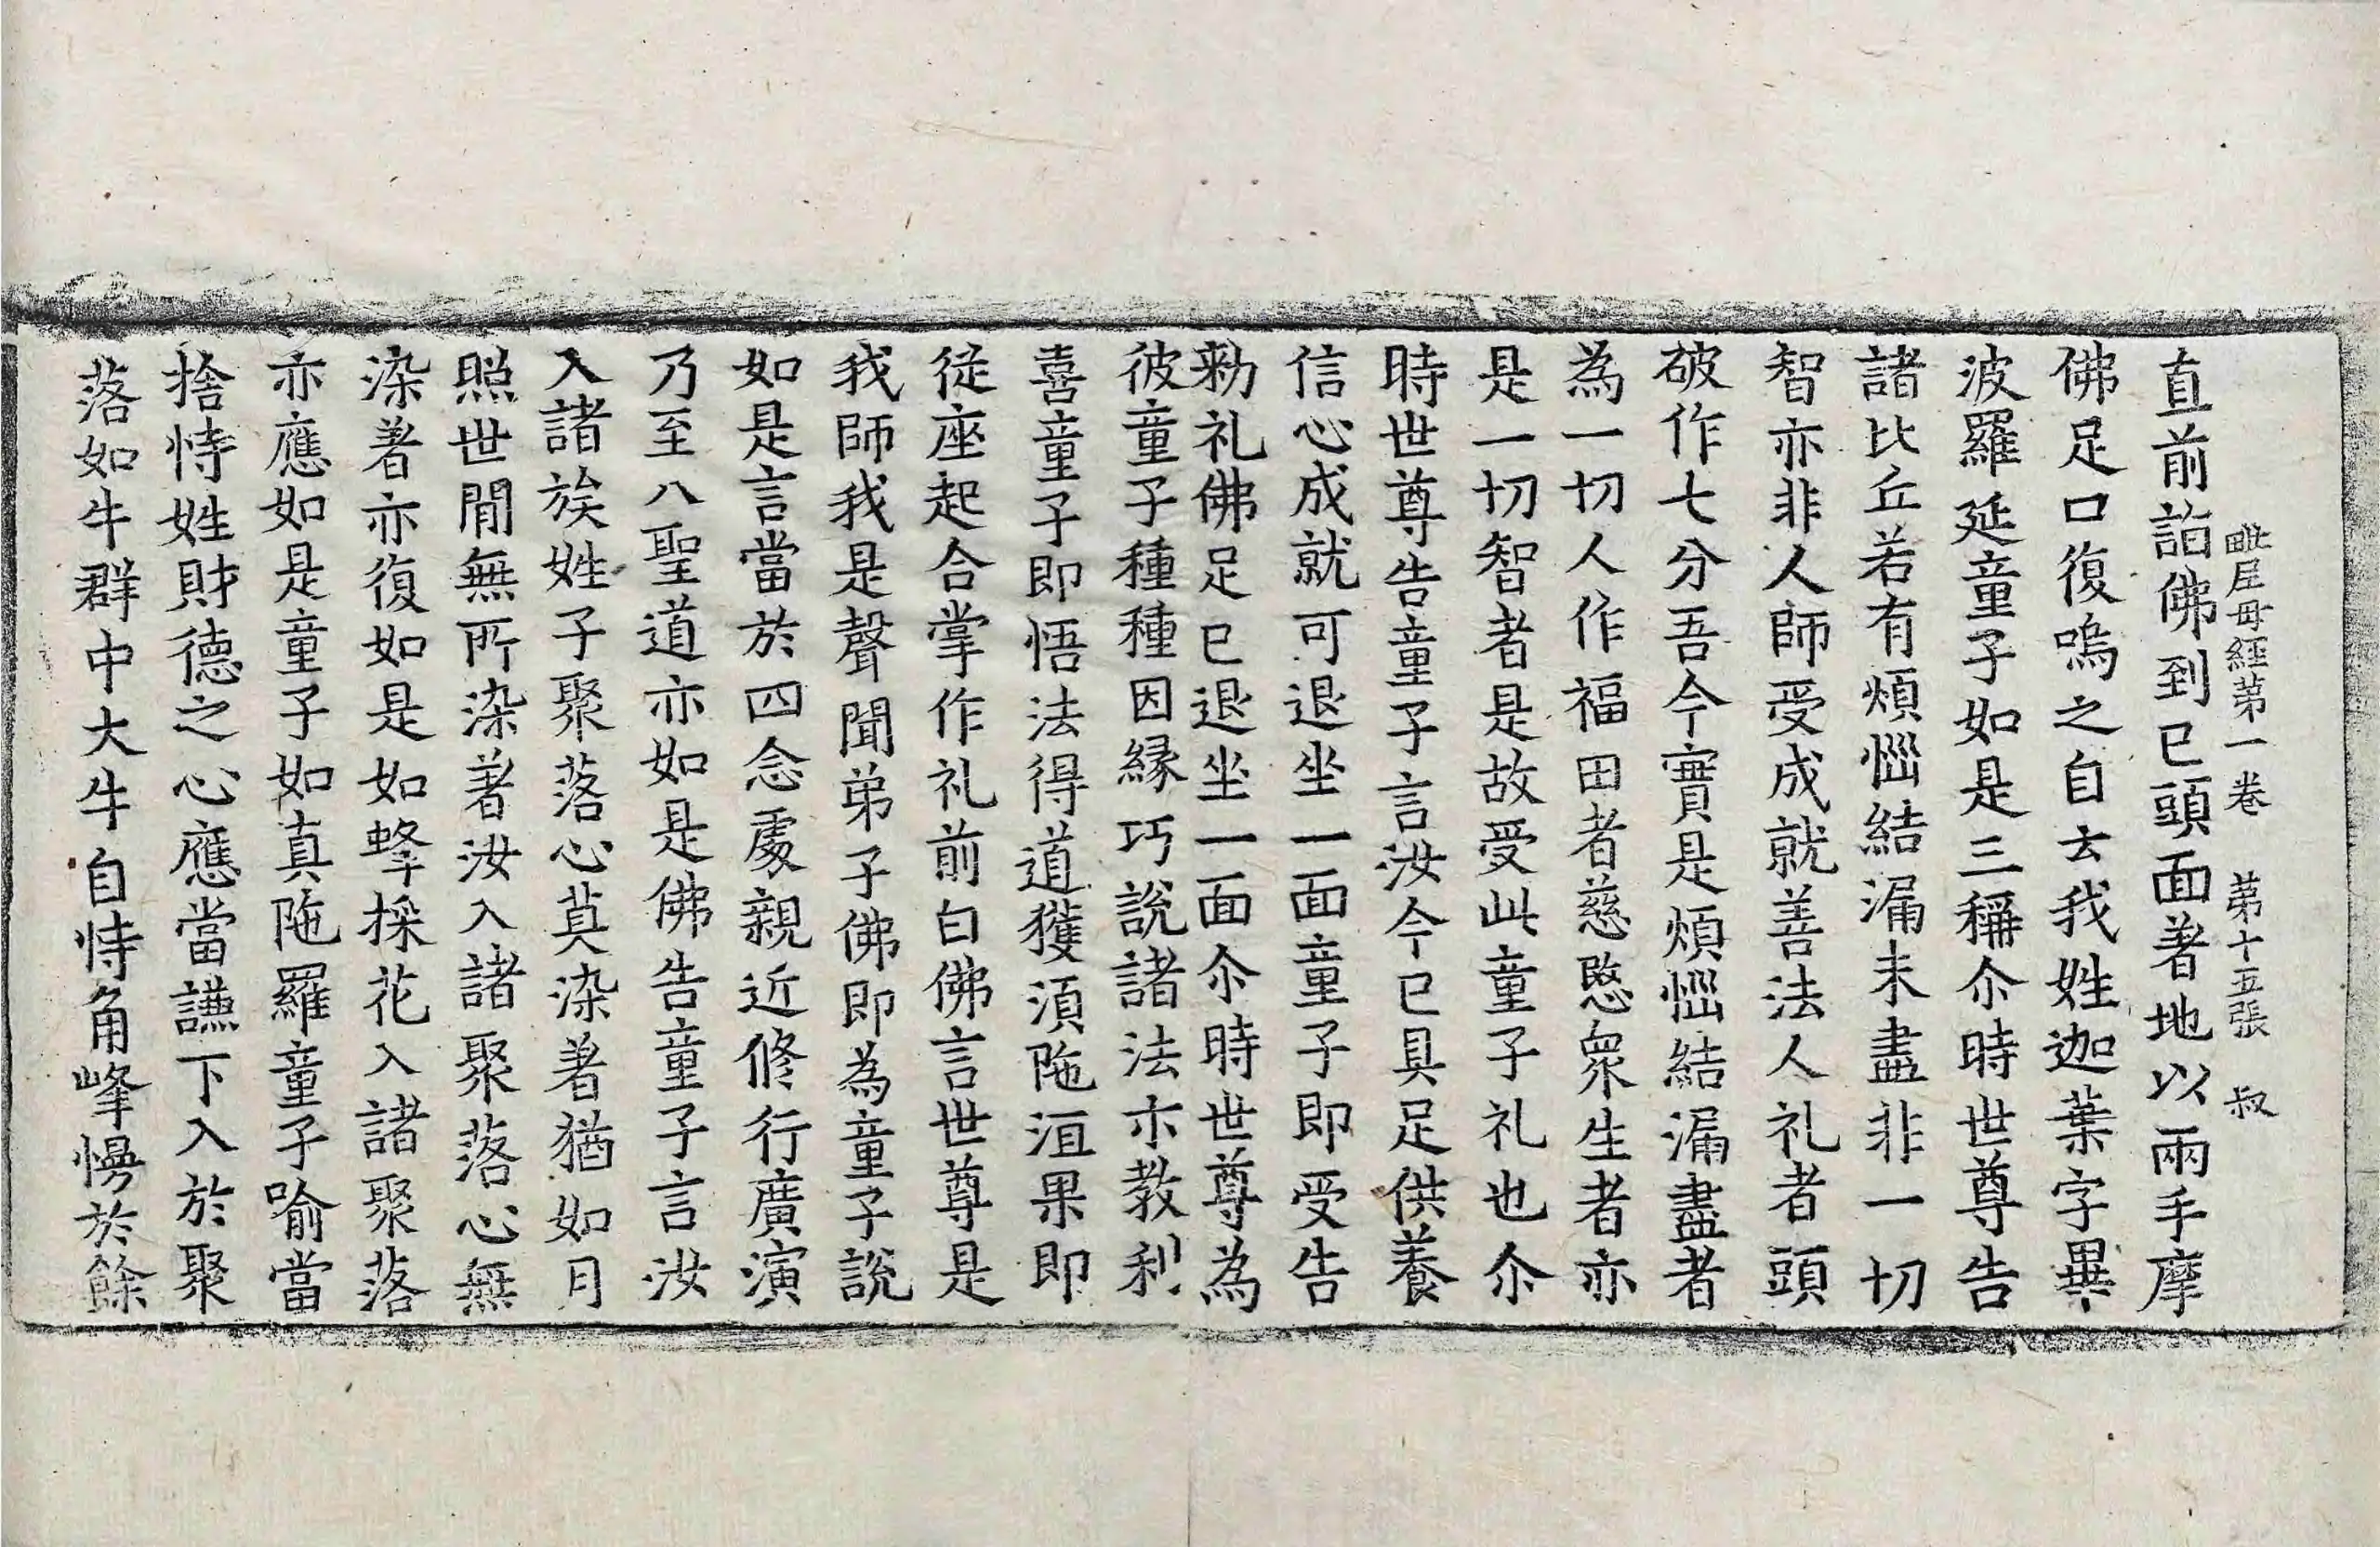 毗尼母經第一卷 第十五張 叔
直前詣佛到已頭面著地以兩手摩
佛足口復嗚之自去我姓迦葉字畢
波羅延童子如是三稱尒時世尊告
諸比丘若有煩惱結漏未盡非一切
智亦非人師受成就善法人礼者頭
破作七分吾今實是煩惱結漏盡者
為一切人作福田者慈愍衆生者亦
是一切智者是故受此童子礼也尒
時世尊告童子言汝今已具足供養
信心成就可退坐一面童子即受告
勑礼佛足已退坐一面尒時世尊為
彼童子種種因縁巧說諸法示教利
喜童子即悟法得道獲湏陁洹果即
従座起合掌作礼前白佛言世尊是
我師我是聲聞弟子佛即為童子說
如是言當於四念處親近修行廣演
乃至八聖道亦如是佛告童子言汝
入諸族姓子聚落心莫染著猶如月
照世間無所染著汝入諸聚落心無
染著亦復如是如蜂採花入諸聚落
亦應如是童子如真陁羅童子喻當
捨恃姓財德之心應當謙下入於聚
落如牛群中大牛自恃角峰慢於餘